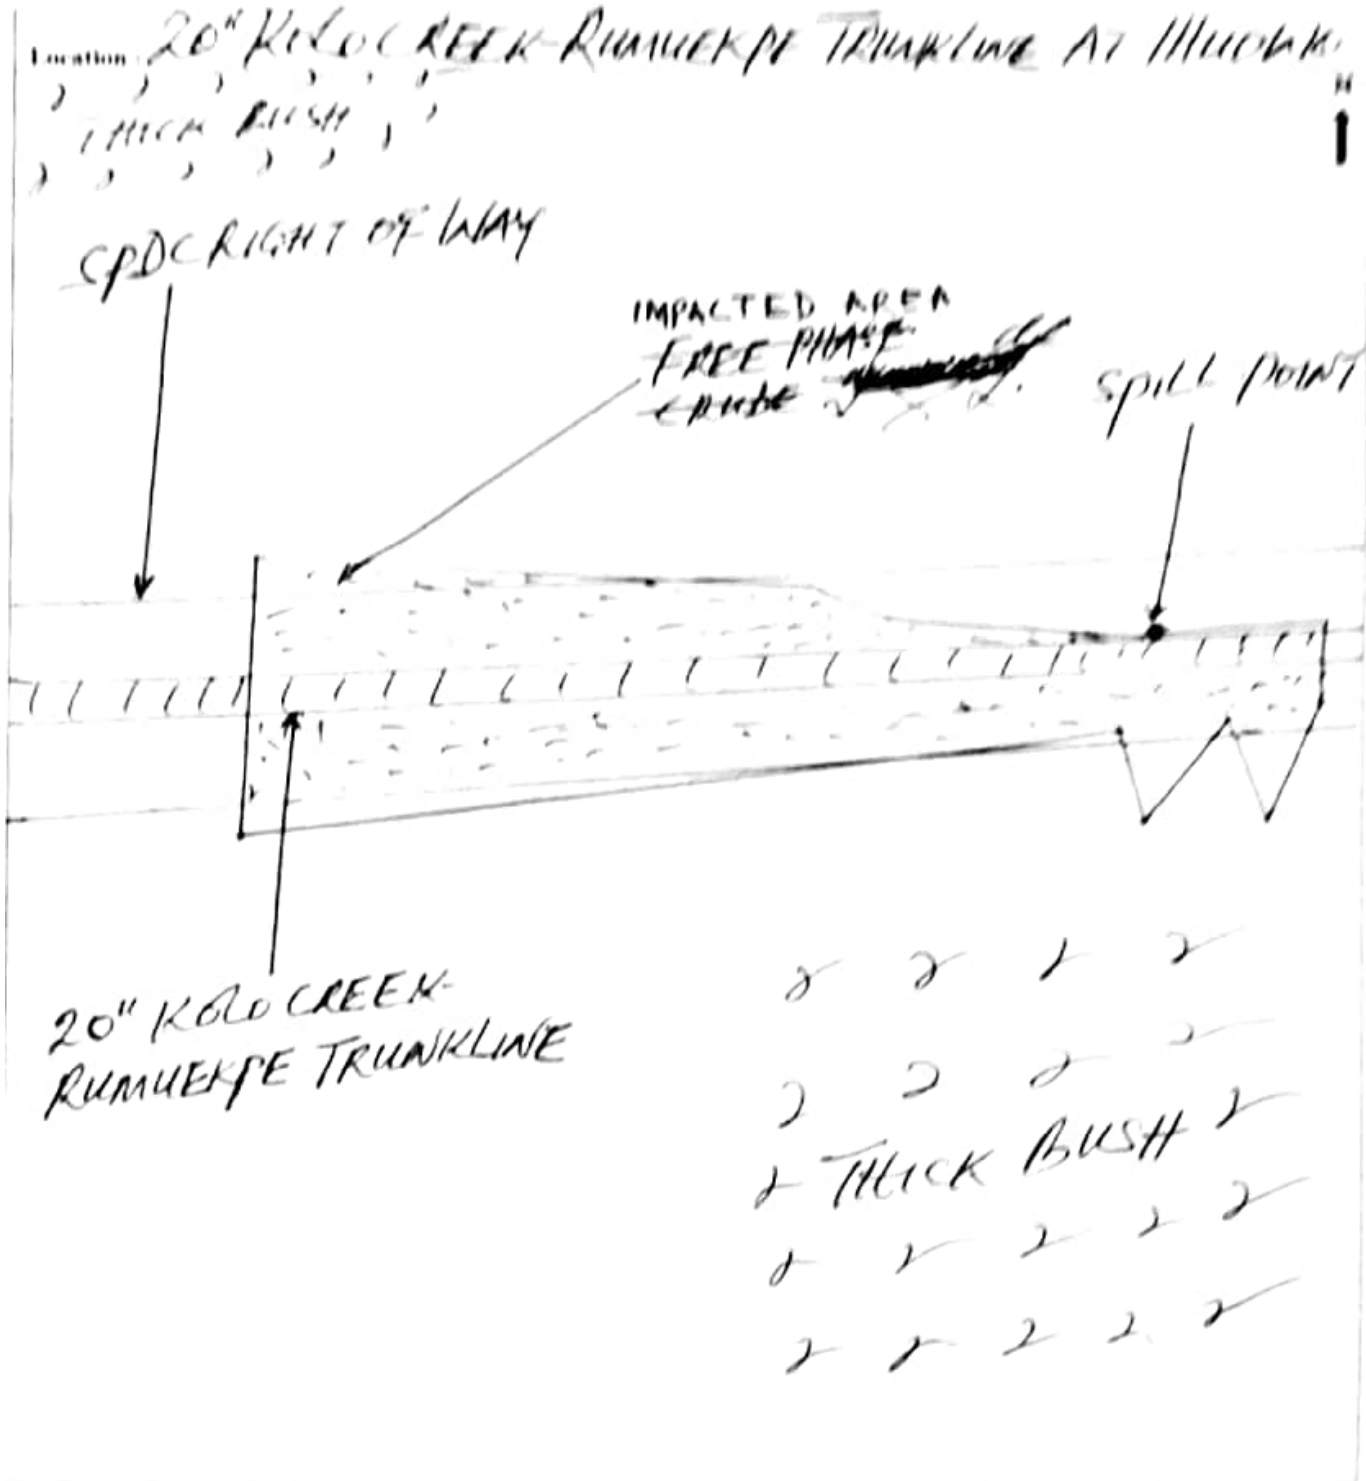 Location 20" KOLOCREEK-RUMUEKPE TRUNKLINE AT
N
THICK BUSH
SPDC RIGHT OF WAY
IMPACTED AREA
FREE PHASE
CRUDE
SPILL POINT
20" KOLOCREEK-
RUMUEKPE TRUNKLINE
THICK BUSH